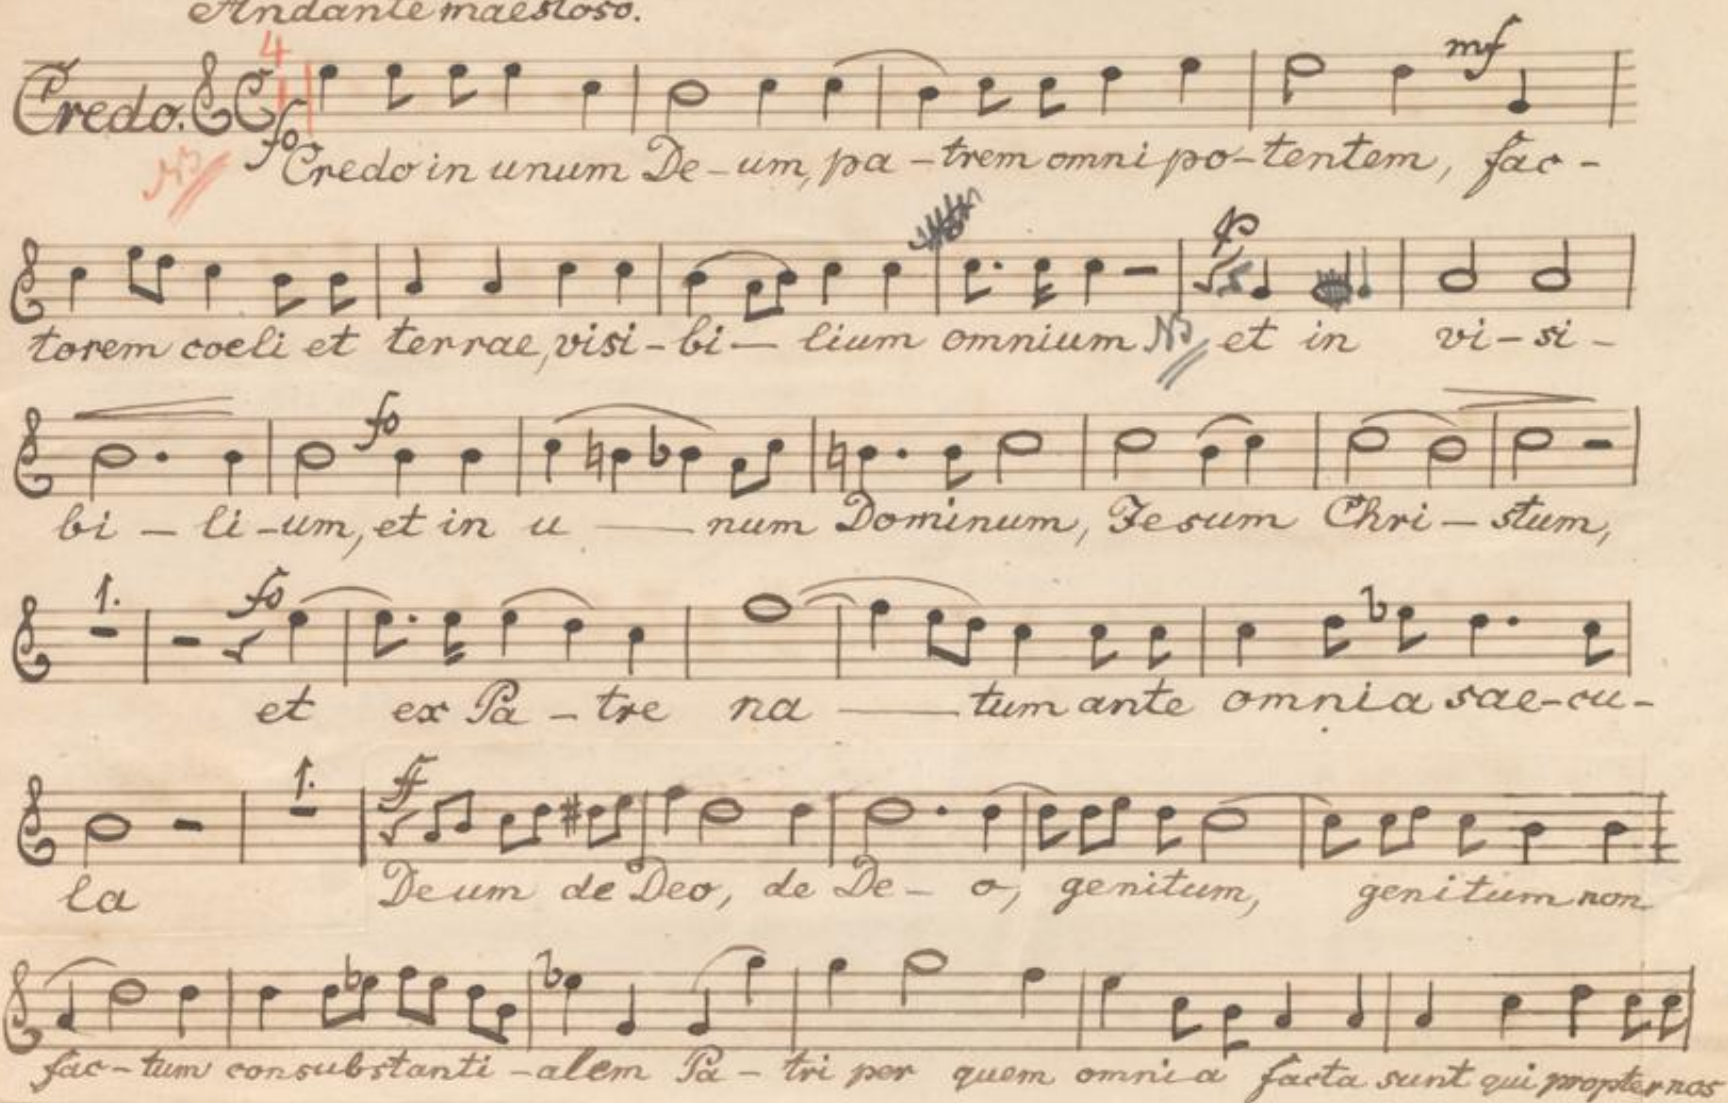 Andante maestoso.
4
mf
Credo. C
fo
NB
Credo in unum De-um, pa-trem omni po-tentem, fac-
p
torem coeli et terrae, visi-bi-lium omnium NB et in vi-si-
fo
bi-li-um, et in u-num Dominum, Jesum Chri-stum,
1. fo
et ex Pa-tre na-tum ante omnia sae-cu-
1. ff
la Deum de Deo, de De-o, genitum, genitum non
fac-tum consubstanti-alem Pa-tri per quem omnia facta sunt qui propter nos